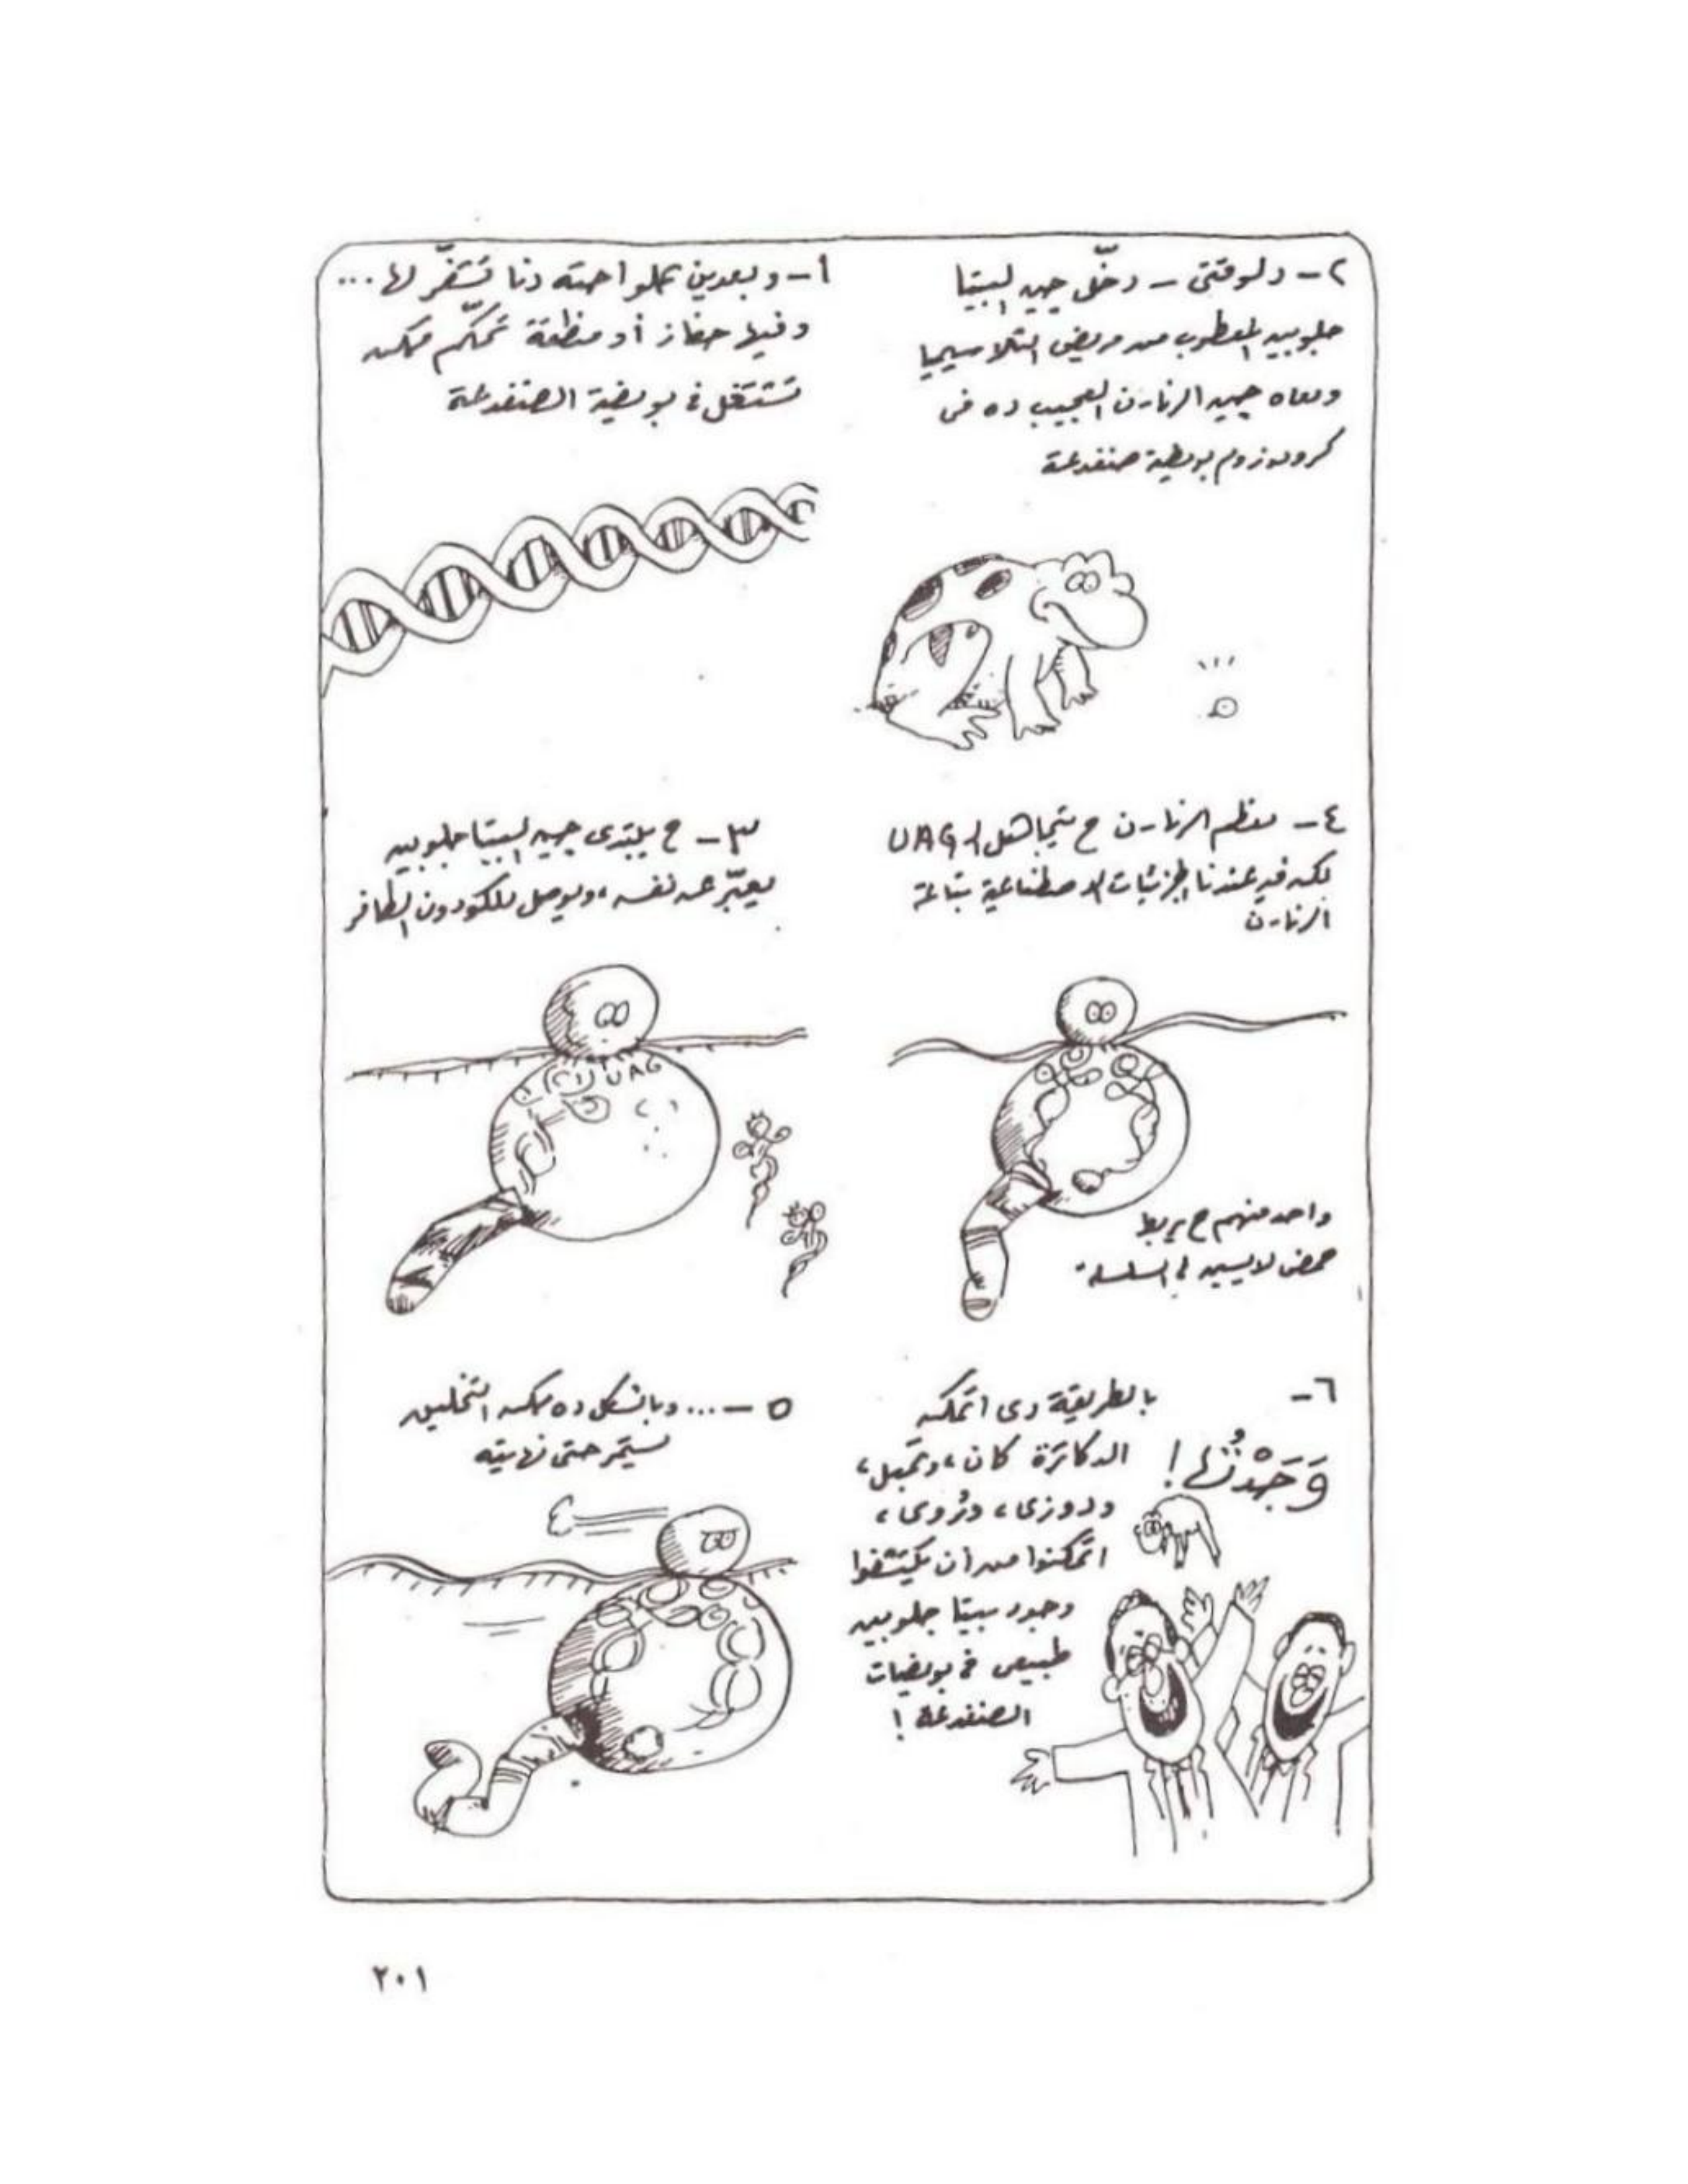 ١- وبعدين عملوا حتة دنا تشفّر لها ...
وفيها حفاز أو منطقة تحكّم ممكن
تشتغل في بويضة الضفدعة
٢- دلوقتي - دخّل جين البيتا
جلوبين المعطوب من مريض التلاسيميا
ومعاه جين الرنا-ن العجيب ده في
كروموزوم بويضة ضفدعة
٣- ح يبتدى جين البيتا جلوبين
يعبّر عن نفسه، ويوصل للكودون الطافر
UAG
٤- معظم الرنا-ن ح تتجاهل الـ UAG
لكن فيه عندنا الجزئيات الاصطناعية بتاعة
الرنا-ن
واحد منهم ح يربط
حمض لايسين في السلسلة
٥- ... وبالشكل ده ممكن التخليق
يستمر حتى نهايته
٦-
وَجَدْتُها!
بالطريقة دي اتمكن
الدكاترة كان، وتمبل،
ودوزى، وتروى،
اتمكنوا من أن يكتشفوا
وجود بيتا جلوبين
طبيعي في بويضات
الضفدعة!
٢٠١